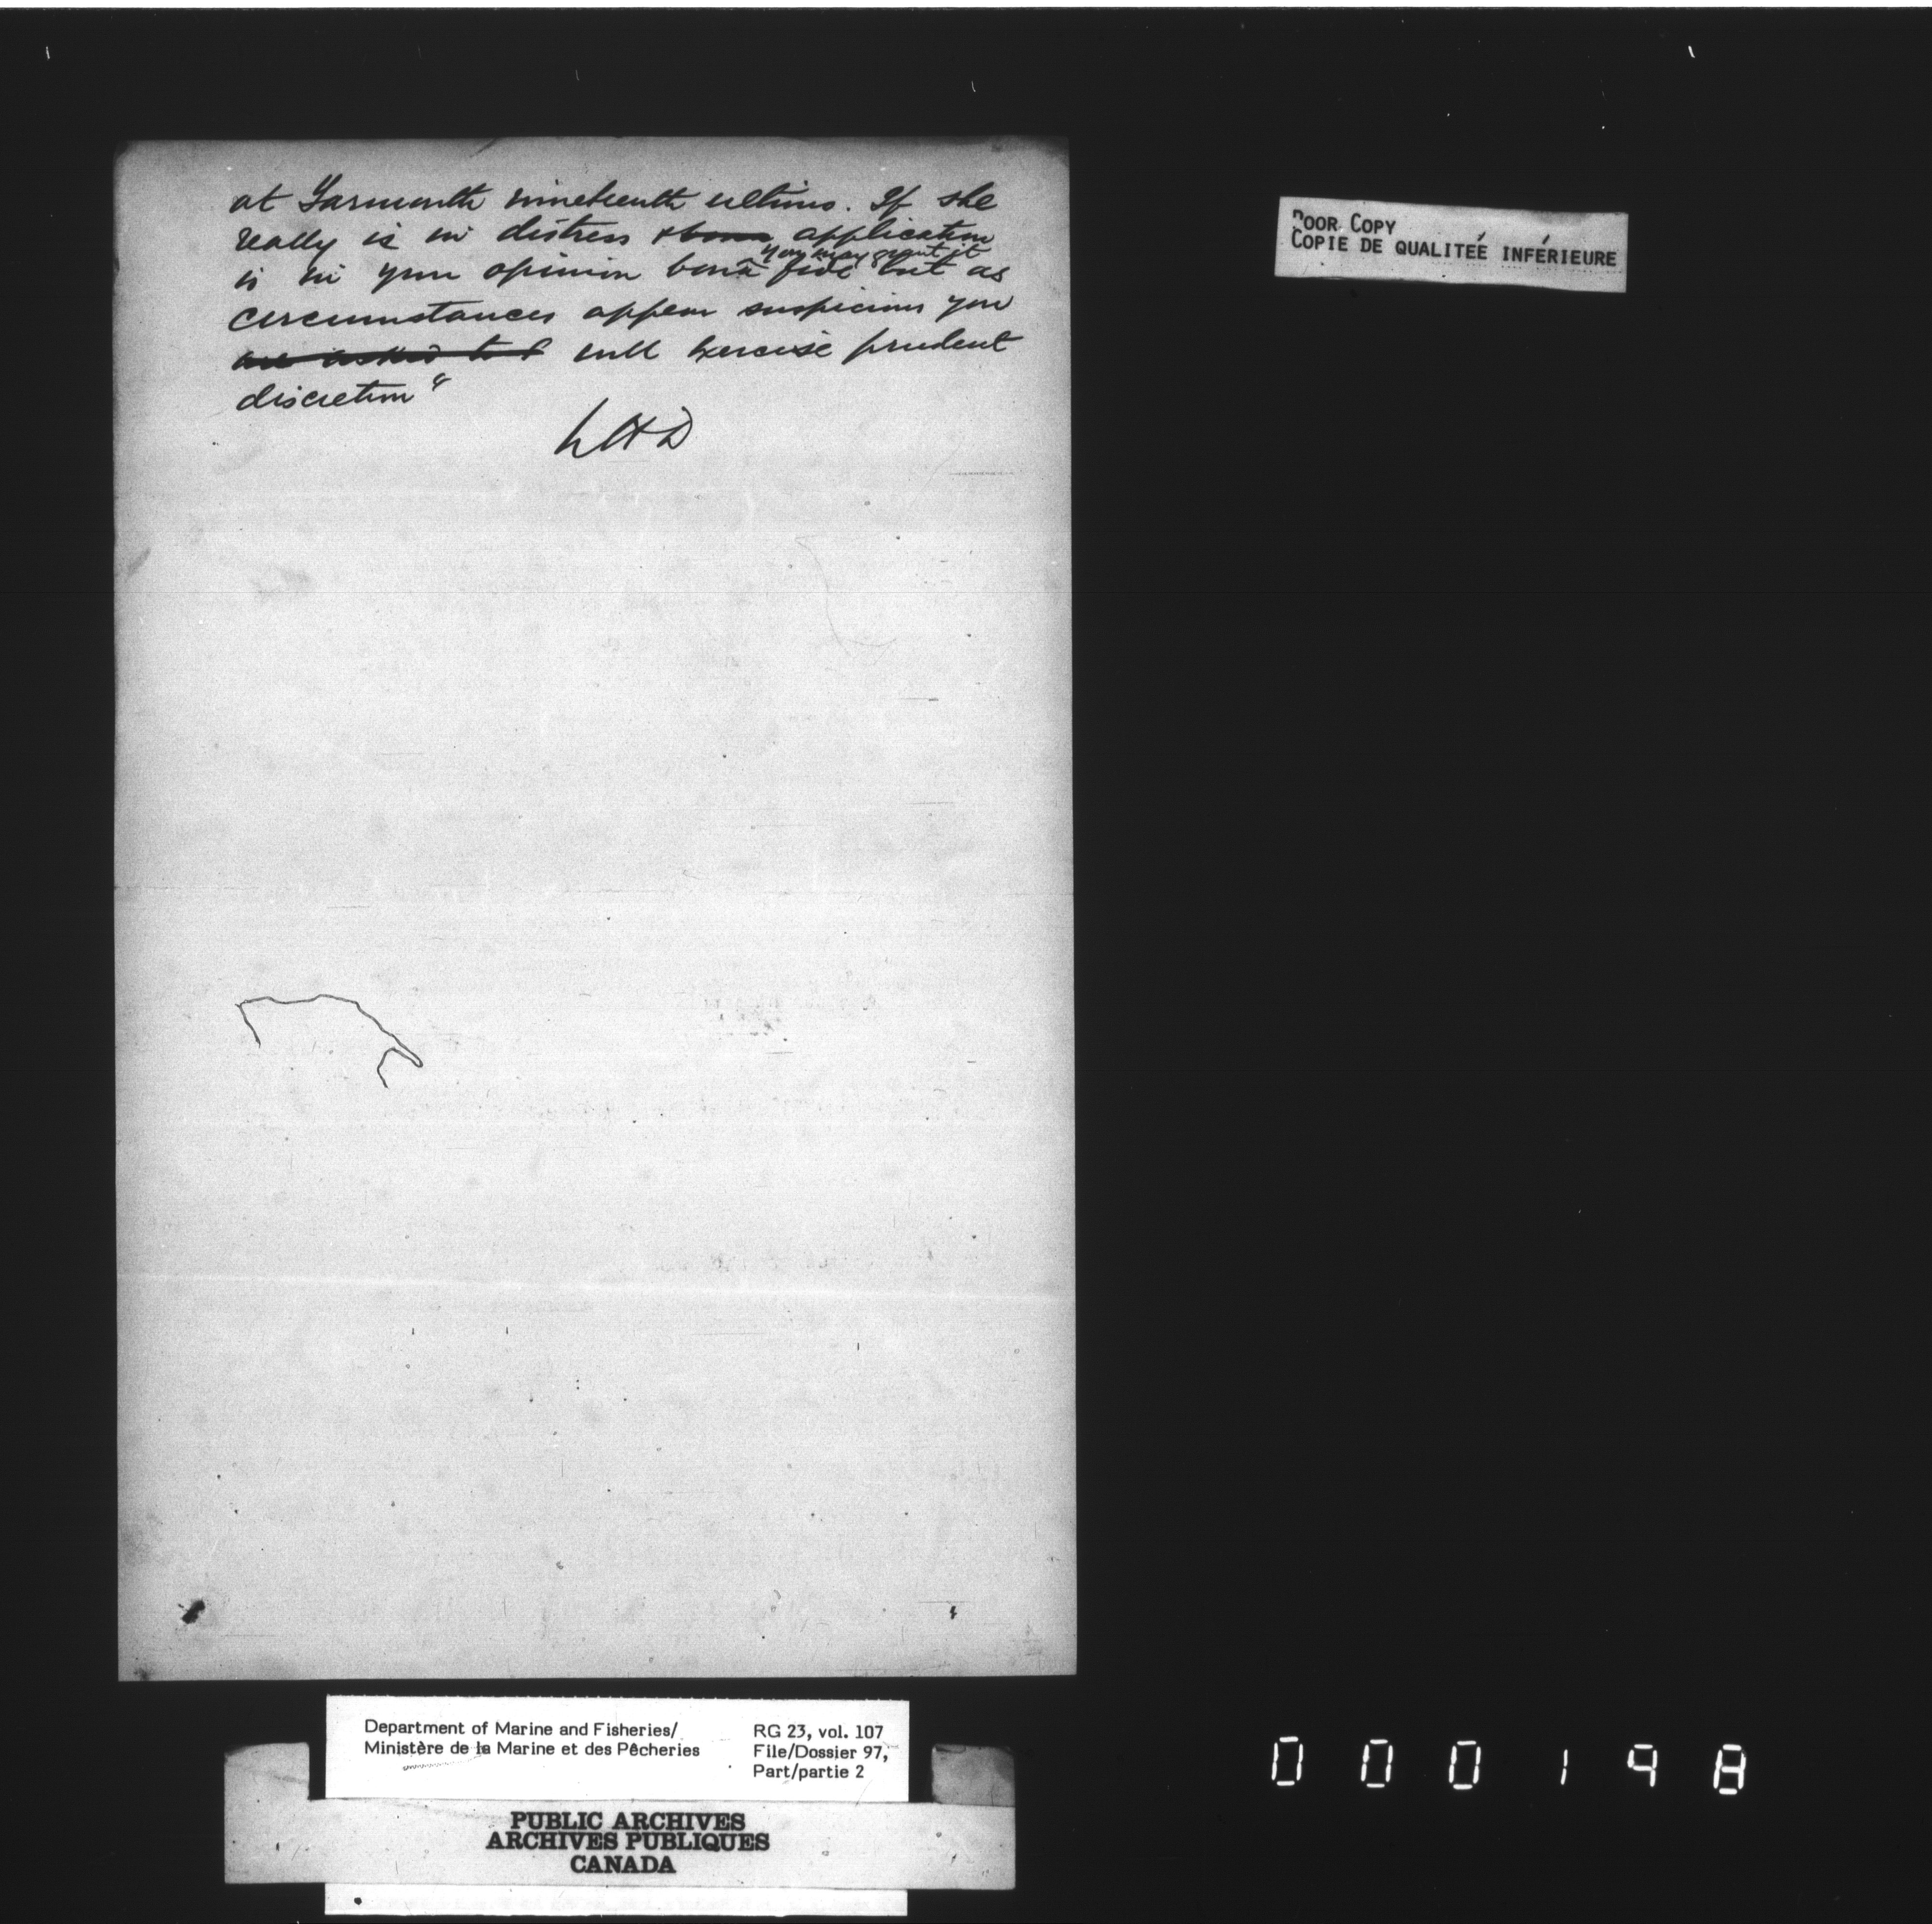 at Yarmouth nineteenth ultimo. If she
really is in distress & bona application
is in your opinion bonâ fide you may grant it but as
circumstances appear suspicious you
are asked to will exercise prudent
discretion"
POOR COPY
COPIE DE QUALITEÉ INFÉRIEURE
Department of Marine and Fisheries/
Ministère de la Marine et des Pêcheries
RG 23, vol. 107
File/Dossier 97,
Part/partie 2
PUBLIC ARCHIVES
ARCHIVES PUBLIQUES
CANADA
000198